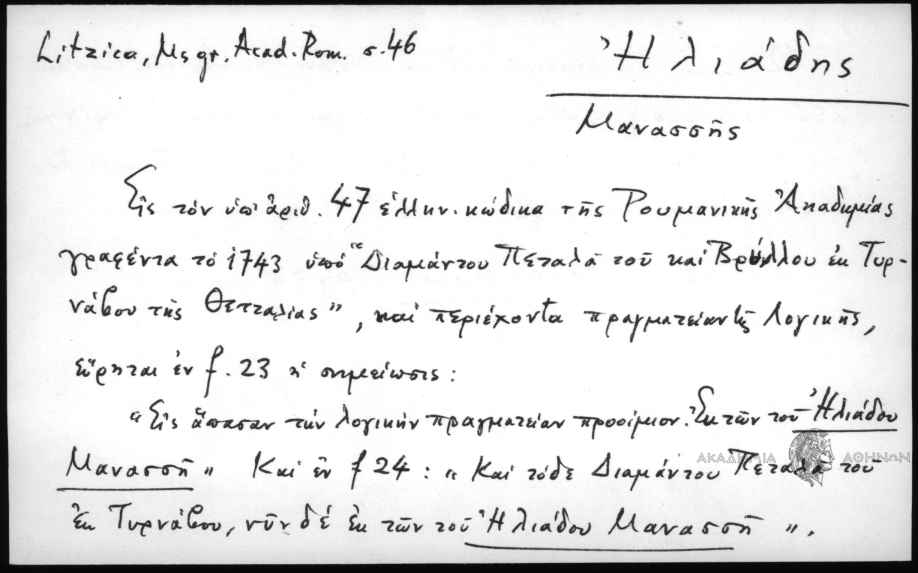 Litzica, Ms gr. Acad. Rom. σ. 46
Ἠλιάδης
Μανασσῆς
Εἰς τὸν ὑπ' ἀριθ. 47 ἑλλην. κώδικα τῆς Ρουμανικῆς Ἀκαδημίας
γραφέντα τὸ 1743 ὑπὸ "Διαμάντου Πεταλᾶ τοῦ καὶ Βρύλλου ἐκ Τυρ-
νάβου τῆς Θετταλίας", καὶ περιέχοντα πραγματείαν τῆς Λογικῆς,
εὕρηται ἐν f. 23 ἡ σημείωσις:
"Εἰς ἅπασαν τὴν λογικὴν πραγματείαν προοίμιον. Ἐκ τῶν τοῦ Ἠλιάδου
Μανασσῆ" Καὶ ἐν f 24: "Καὶ τόδε Διαμάντου Πεταλᾶ τοῦ
ἐκ Τυρνάβου, νῦν δέ ἐκ τῶν τοῦ Ἠλιάδου Μανασσῆ".
ΑΚΑΔΗΜΙΑ ΑΘΗΝΩΝ